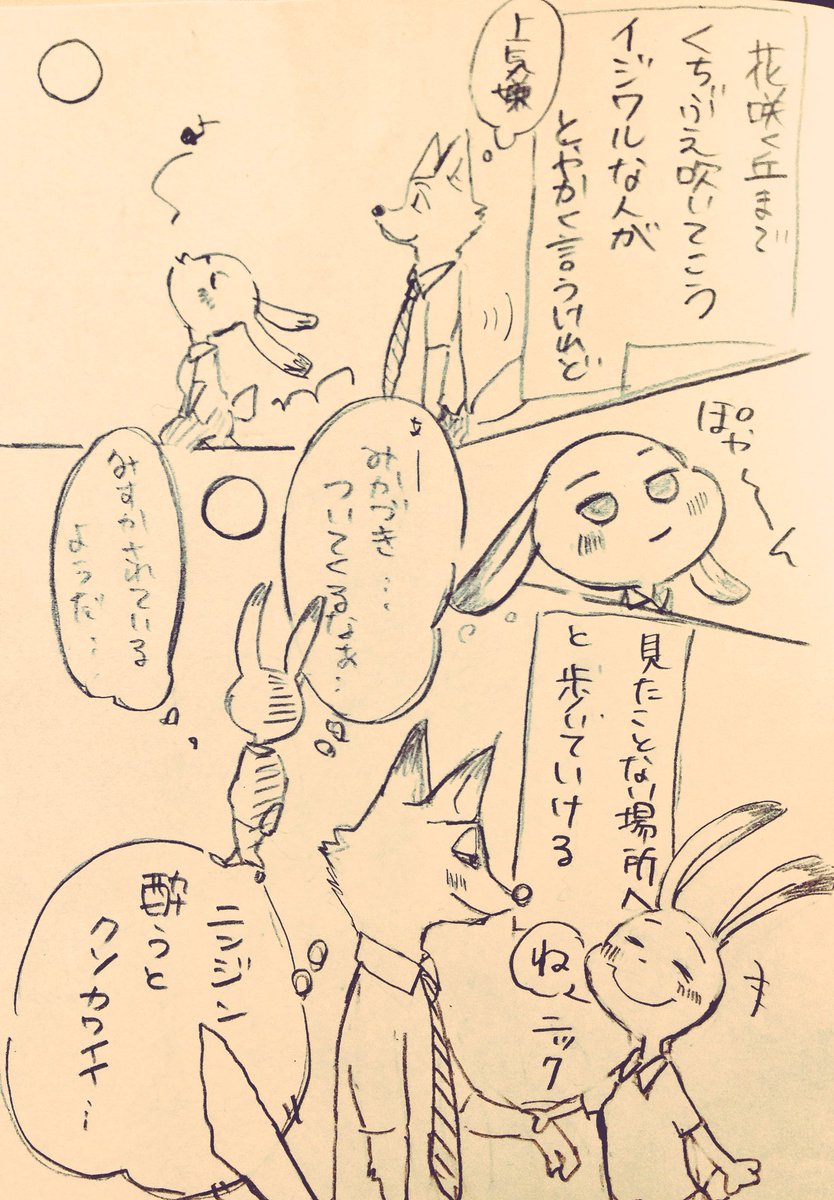 花咲く丘まで
くちぶえ吹いてこう
イジワルな人が
とやかく言うけれど
上気嫌
♪
ぽや〜ん
あー
みかづき…
ついてくるなぁ…
みすかされている
ようだ…
見たことない場所へ
と歩いていける
ね
ニック
ニンジン
酔うと
クソカワナナ…